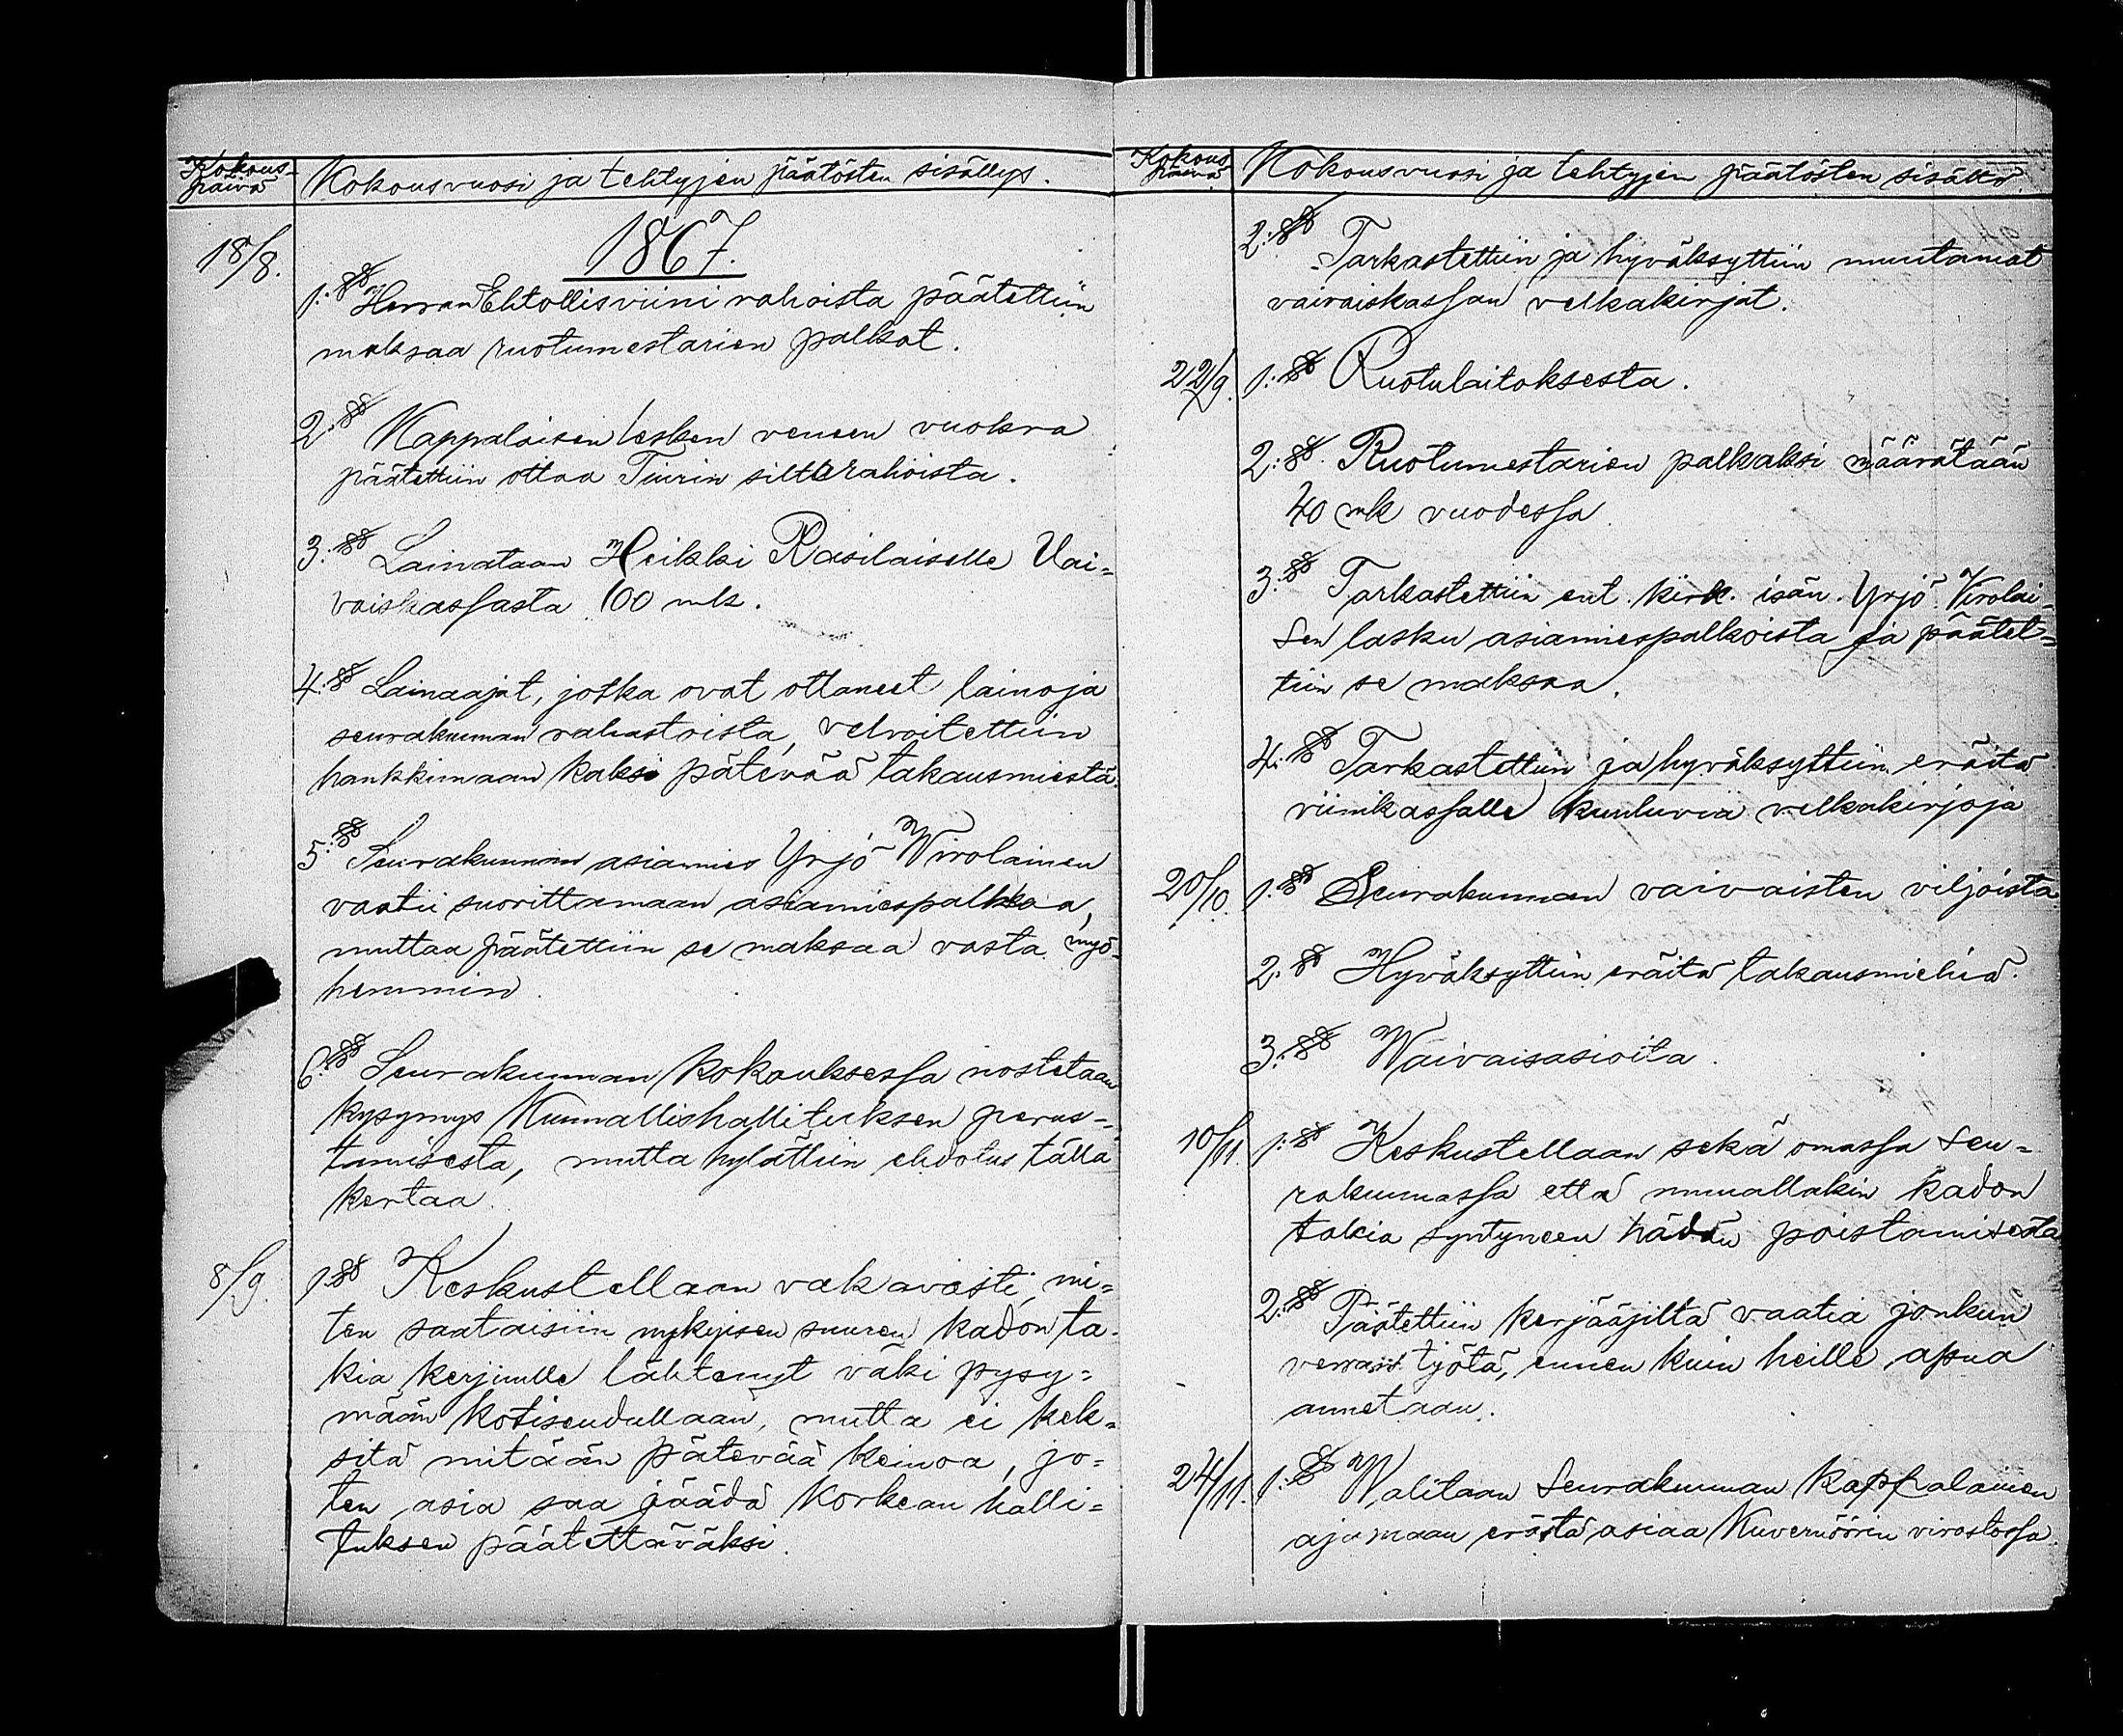 Kokous-
päivä
Kokousvuosi ja tehtyjen päätösten sisällys.
1867.
18/8.
1:§§ Herran Ehtollisviini rahoista päätettiin
maksaa ruotumestarien palkat.
2:§§ Kappalaisen lesken veneen vuokra
päätettiin ottaa Tiurin siltterahoista.
3:§§ Lainataan Heikki Rasilaiselle Vai=
vaiskassasta 100 mk.
4:§§ Lainaajat, jotka ovat ottaneet lainoja
seurakunnan rahastoista, velvoitettiin
hankkimaan kaksi pätevää takausmiestä.
5:§§ Seurakunnan asiamies Yrjö Wirolainen
vaatii suorittamaan asiamiespalkkaa,
muttaa päätettiin se maksaa vasta myö-
hemmin.
6:§§ Seurakunnan kokouksessa nostetaan
kysymys Kunnallishallituksen perus=
tamisesta, mutta hylättiin ehdotus tällä
kertaa.
8/9.
1:§§ Keskustellaan vakavasti, mi=
ten saataisiin nykyisen suuren kadon ta-
kia kerjuulle lähtenyt väki pysy=
mään kotiseudullaan, mutta ei kek=
sitä mitään pätevää keinoa, jo=
ten asia saa jäädä Korkean halli=
tuksen päätettäväksi.
Kokous
päivä
Kokousvuosi ja tehtyjen päätösten sisältö.
2:§§ Tarkastettiin ja hyväksyttiin muutamat
vaivaiskassan velkakirjat.
22/9.
1:§§ Ruotulaitoksesta.
2:§§ Ruotumestarien palkaksi määrätään
40 mk vuodessa.
3:§§ Tarkastettiin ent. kirk. isän. Yrjö Virolai-
sen lasku asiamiespalkoista ja päätet=
tiin se maksaa.
4:§§ Tarkastettiin ja hyväksyttiin eräitä
viinikassalle kuuluvia velkakirjoja
20/10.
1:§§ Seurakunnan vaivaisten viljoista
2:§§ Hyväksyttiin eräitä takausmiehiä.
3:§§ Waivaisasioita.
10/11.
1:§§ Keskustellaan sekä omassa seu=
rakunnassa että muuallakin kadon
takia syntyneen hädän poistamisesta
2:§§ Päätettiin kerjääjiltä vaatia jonkun
verran työtä, ennen kuin heille apua
annetaan.
24/11.
1:§§ Walitaan Seurakunnan kappalainen
ajamaan erästä asiaa Kuvernöörin virastossa.